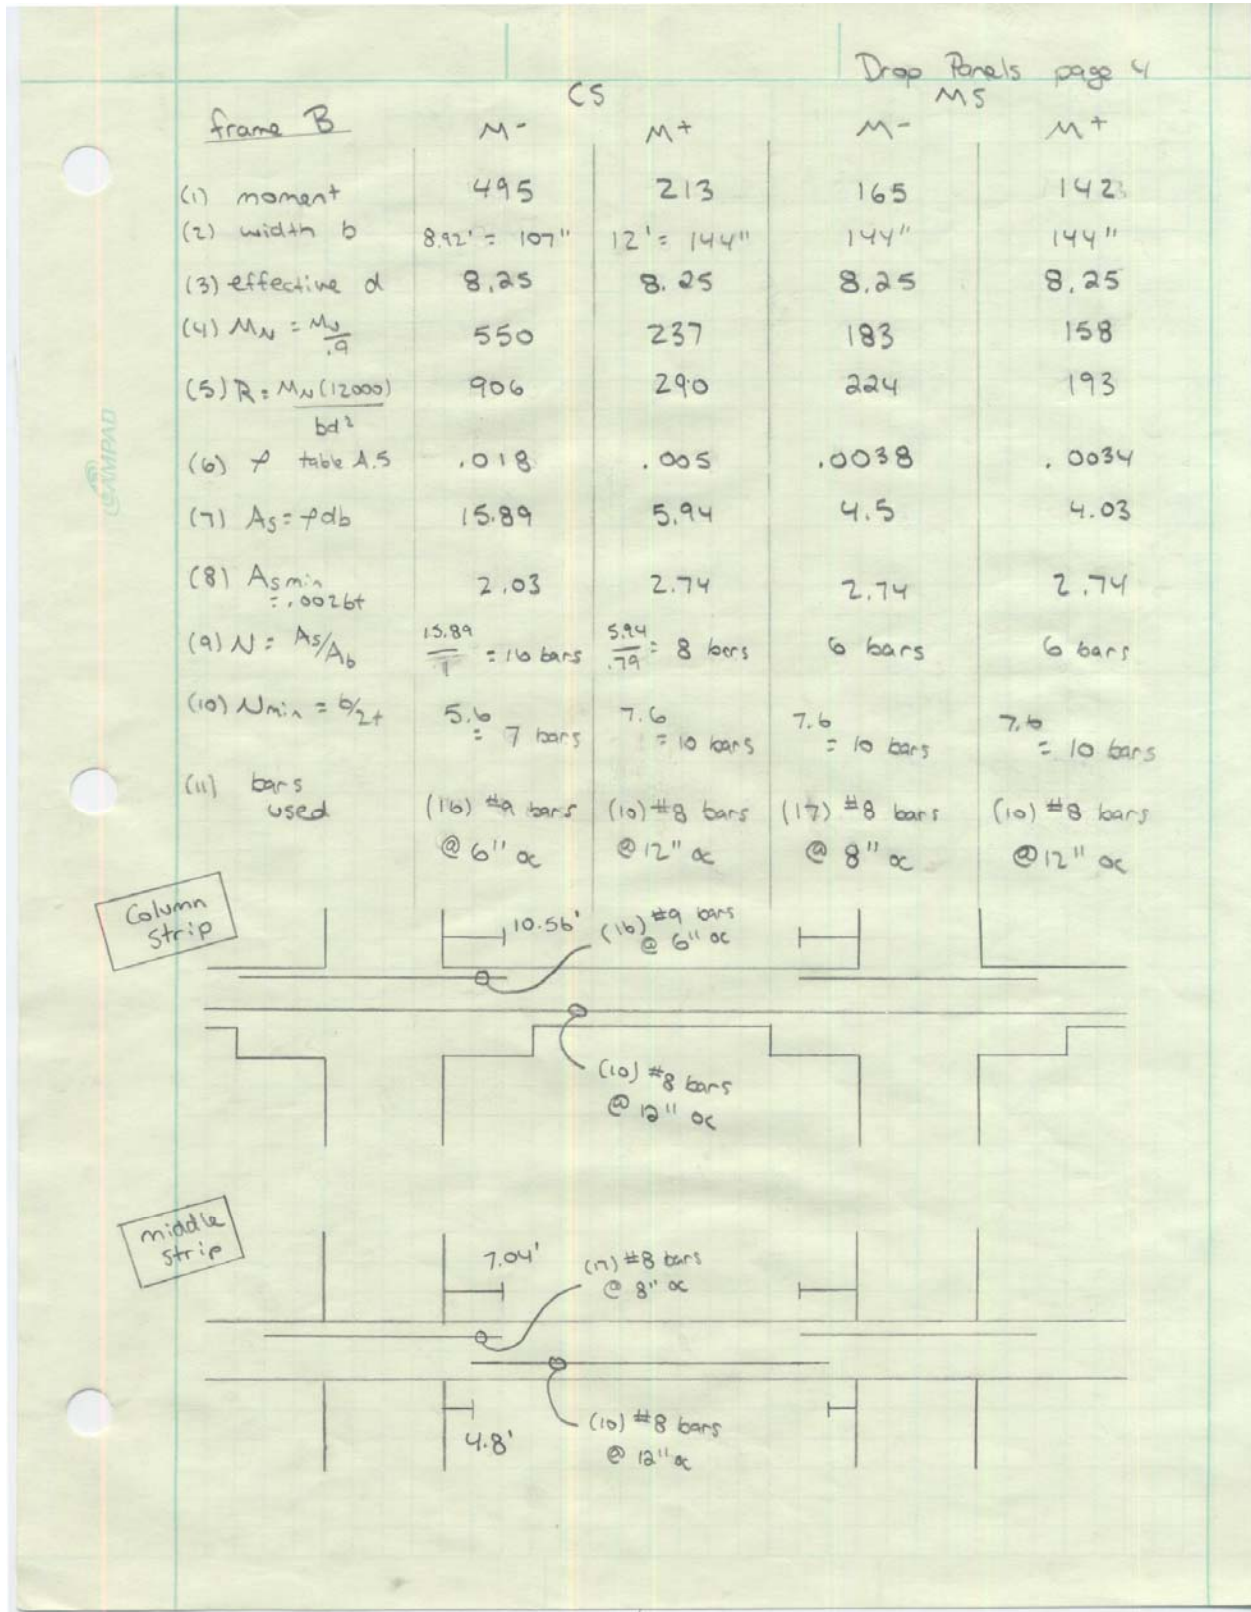 Drop Panels page 4
CS MS
frame B M- M+ M- M+
(1) moment 495 213 165 142
(2) width b 8.92' = 107" 12' = 144" 144" 144"
(3) effective d 8.25 8.25 8.25 8.25
(4) MN = Mu/.9 550 237 183 158
(5) R = MN(12000)/bd² 906 290 224 193
(6) ρ table A.5 .018 .005 .0038 .0034
(7) As = ρdb 15.89 5.94 4.5 4.03
(8) Asmin = .002bt 2.03 2.74 2.74 2.74
(9) N = As/Ab 15.89/1 = 16 bars 5.94/.79 = 8 bars 6 bars 6 bars
(10) Nmin = b/2t 5.6 = 7 bars 7.6 = 10 bars 7.6 = 10 bars 7.6 = 10 bars
(11) bars used (16) #9 bars (10) #8 bars (17) #8 bars (10) #8 bars
@ 6" oc @ 12" oc @ 8" oc @ 12" oc
Column
Strip
10.56' (16) #9 bars
@ 6" oc
(10) #8 bars
@ 12" oc
middle
strip
7.04' (17) #8 bars
@ 8" oc
4.8' (10) #8 bars
@ 12" oc
CAMPAD